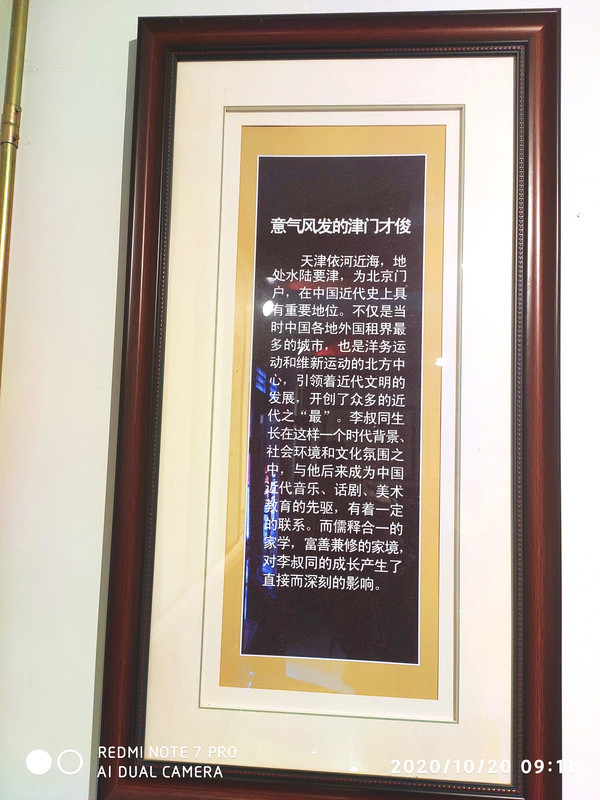 意气风发的津门才俊
天津依河近海，地
处水陆要津，为北京门
户，在中国近代史上具
有重要地位。不仅是当
时中国各地外国租界最
多的城市，也是洋务运
动和维新运动的北方中
心，引领着近代文明的
发展，开创了众多的近
代之“最”。李叔同生
长在这样一个时代背景、
社会环境和文化氛围之
中，与他后来成为中国
近代音乐、话剧、美术
教育的先驱，有着一定
的联系。而儒释合一的
家学，富善兼修的家境，
对李叔同的成长产生了
直接而深刻的影响。
REDMI NOTE 7 PRO
AI DUAL CAMERA
2020/10/20